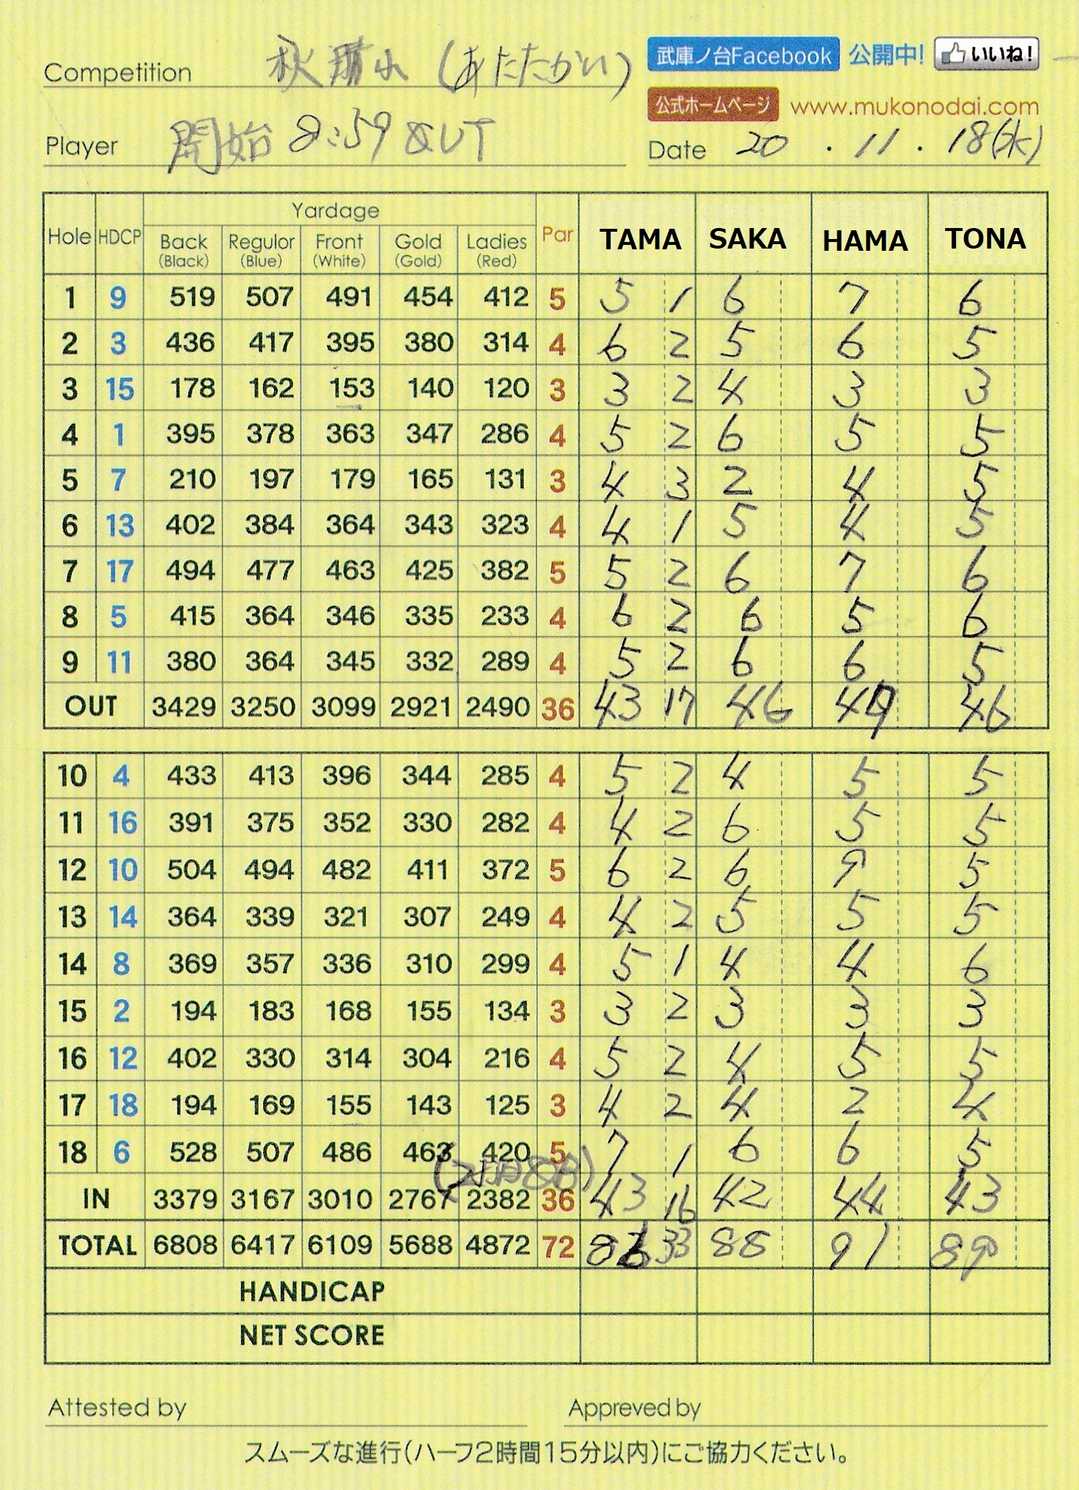 Competition 秋晴れ (あたたかい) 武庫ノ台Facebook 公開中! いいね!
公式ホームページ www.mukonodai.com
Player 開始 8:59 OUT Date 20 . 11 . 18(水)
Hole HDCP Yardage Par TAMA SAKA HAMA TONA
Back Regulor Front Gold Ladies
(Black) (Blue) (White) (Gold) (Red)
1 9 519 507 491 454 412 5 5 1 6 7 6
2 3 436 417 395 380 314 4 6 2 5 6 5
3 15 178 162 153 140 120 3 3 2 4 3 3
4 1 395 378 363 347 286 4 5 2 6 5 5
5 7 210 197 179 165 131 3 4 3 2 4 5
6 13 402 384 364 343 323 4 4 1 5 4 5
7 17 494 477 463 425 382 5 5 2 6 7 6
8 5 415 364 346 335 233 4 6 2 6 5 6
9 11 380 364 345 332 289 4 5 2 6 6 5
OUT 3429 3250 3099 2921 2490 36 43 17 46 47 46
10 4 433 413 396 344 285 4 5 2 4 5 5
11 16 391 375 352 330 282 4 4 2 6 5 5
12 10 504 494 482 411 372 5 6 2 6 9 5
13 14 364 339 321 307 249 4 4 2 5 5 5
14 8 369 357 336 310 299 4 5 1 4 4 6
15 2 194 183 168 155 134 3 3 2 3 3 3
16 12 402 330 314 304 216 4 5 2 4 5 5
17 18 194 169 155 143 125 3 4 2 4 2 4
18 6 528 507 486 463 420 5 7 1 6 6 5
IN 3379 3167 3010 2767 2382 36 43 16 42 44 43
TOTAL 6808 6417 6109 5688 4872 72 86 33 88 91 89
HANDICAP
NET SCORE
Attested by Appreved by
スムーズな進行(ハーフ2時間15分以内)にご協力ください。